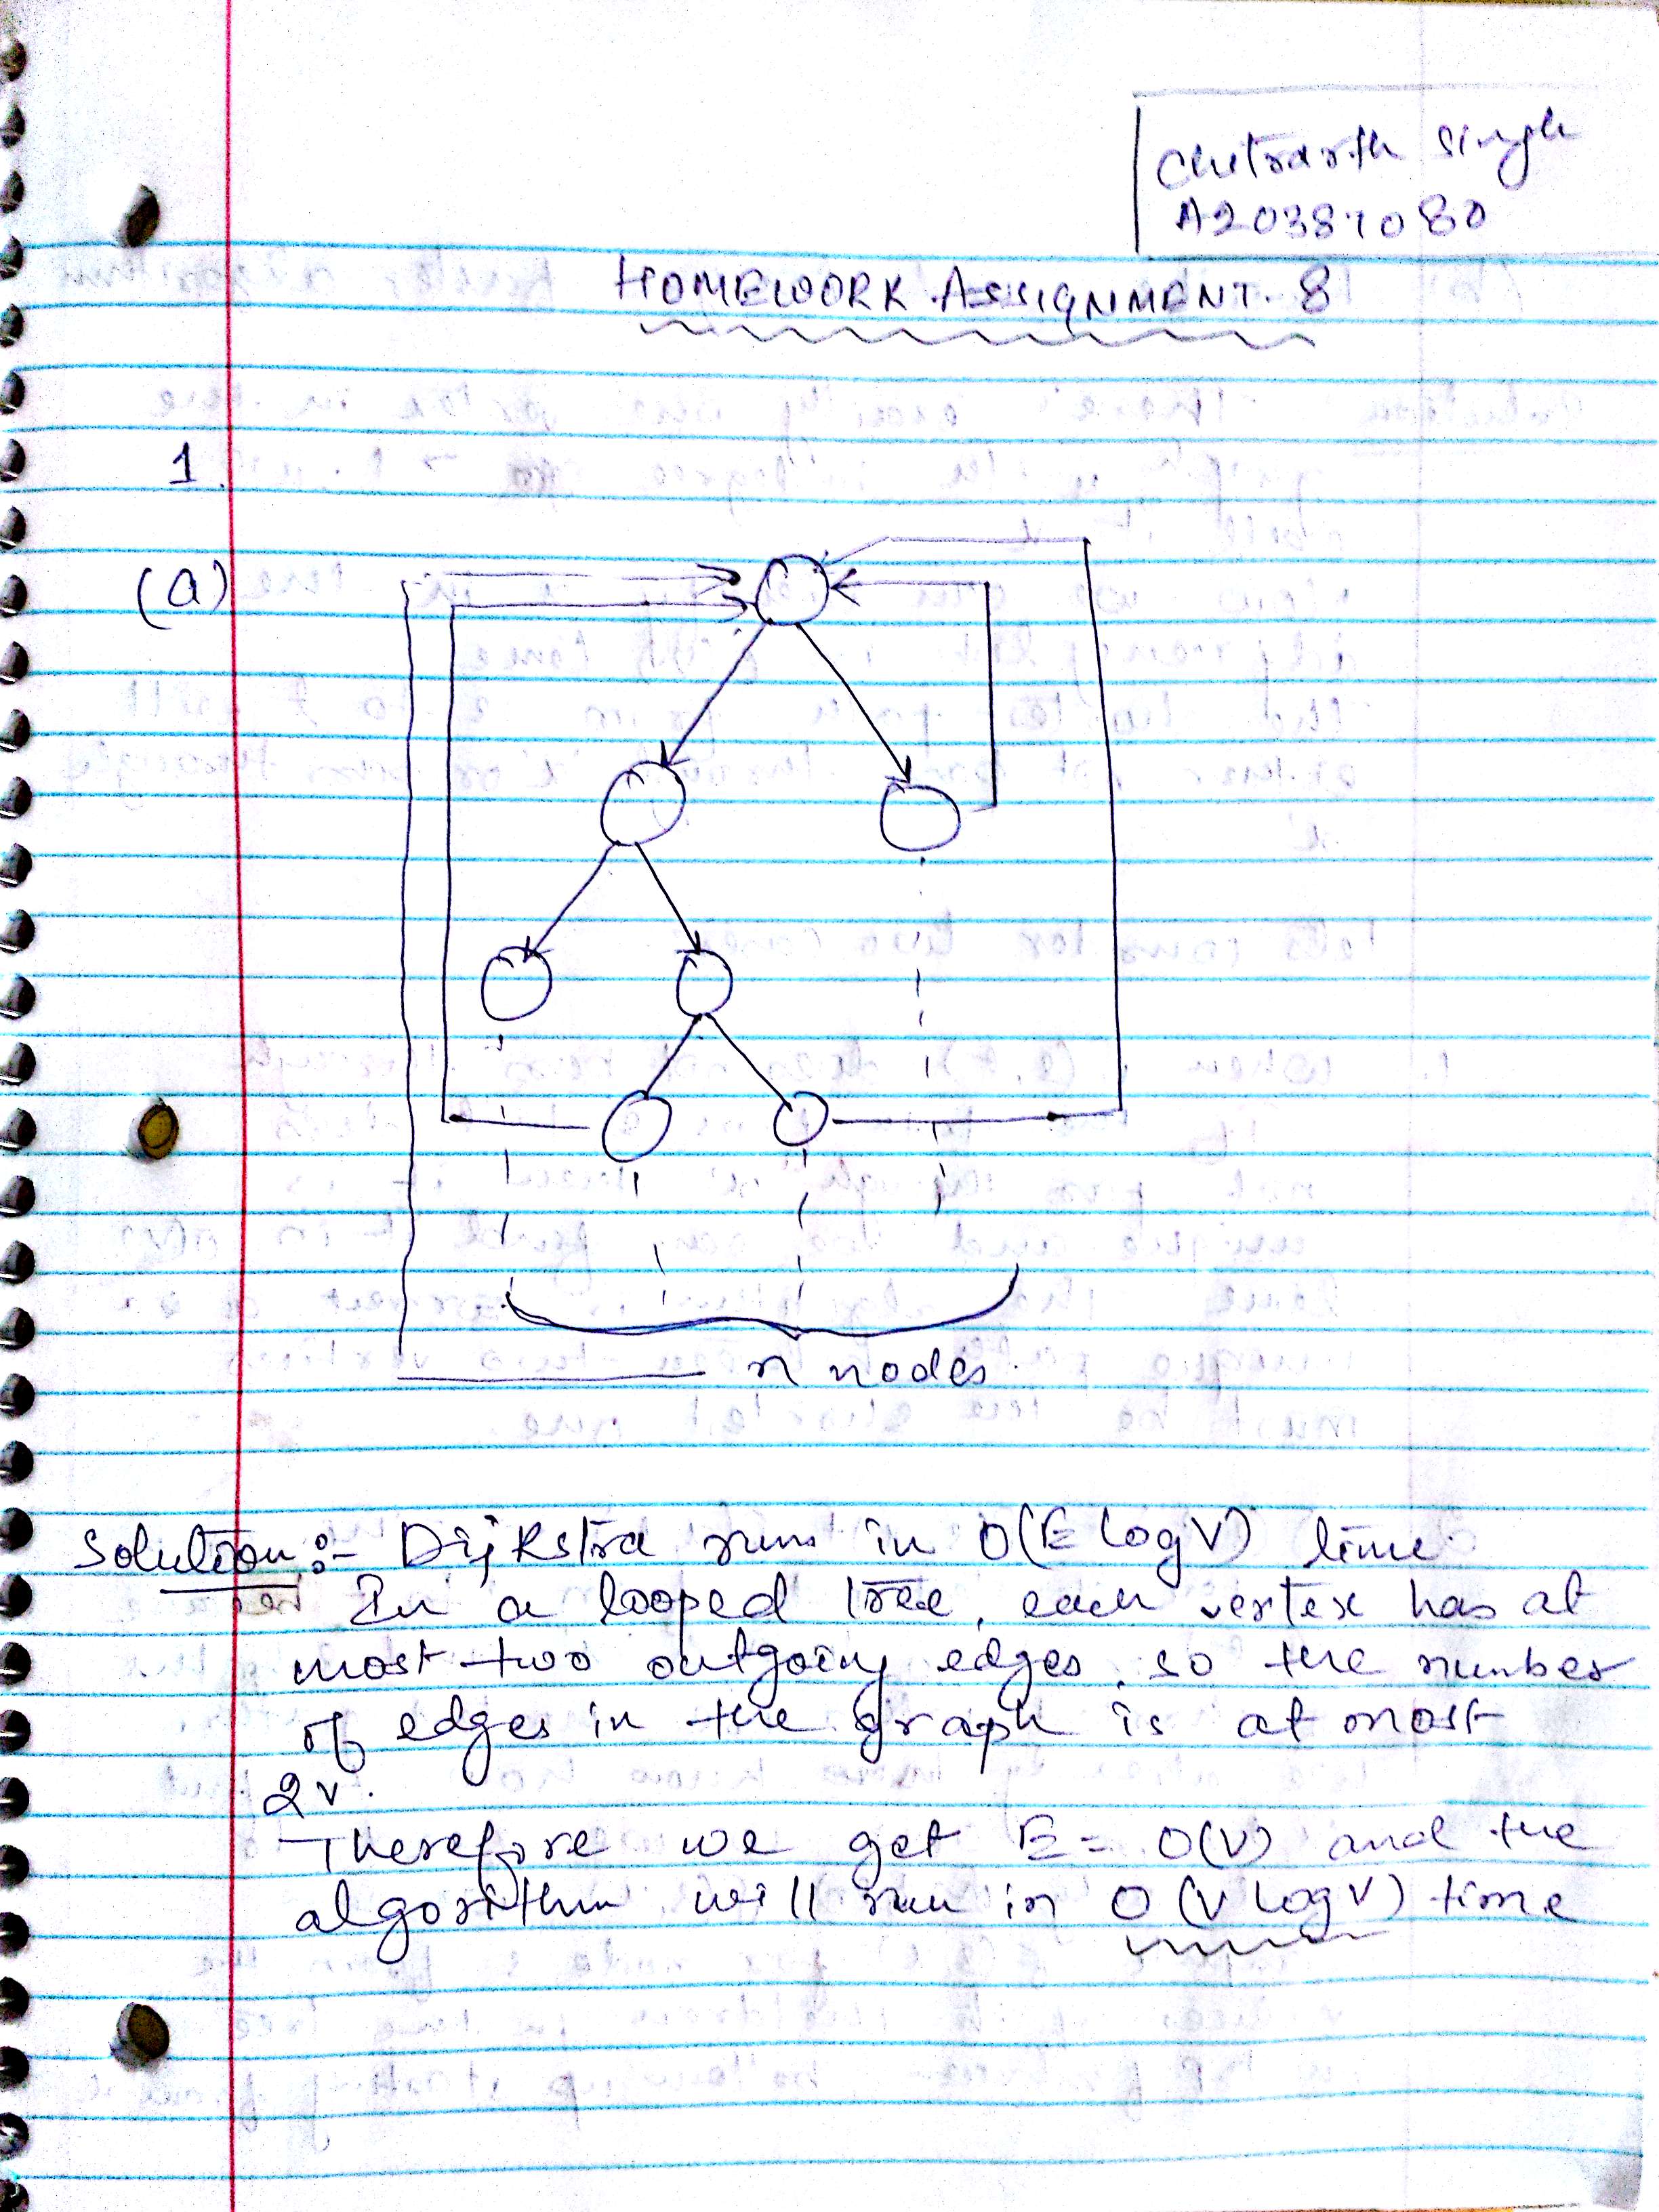 Chitrarth Singh
A20387080
HOMEWORK ASSIGNMENT. 8
1.
(a)
n nodes.
Solution :- Dijkstra runs in O(E log V) time.
In a looped tree, each vertex has at
most two outgoing edges, so the number
of edges in the graph is at most
2v.
Therefore we get E = O(V) and the
algorithm will run in O(V log V) time